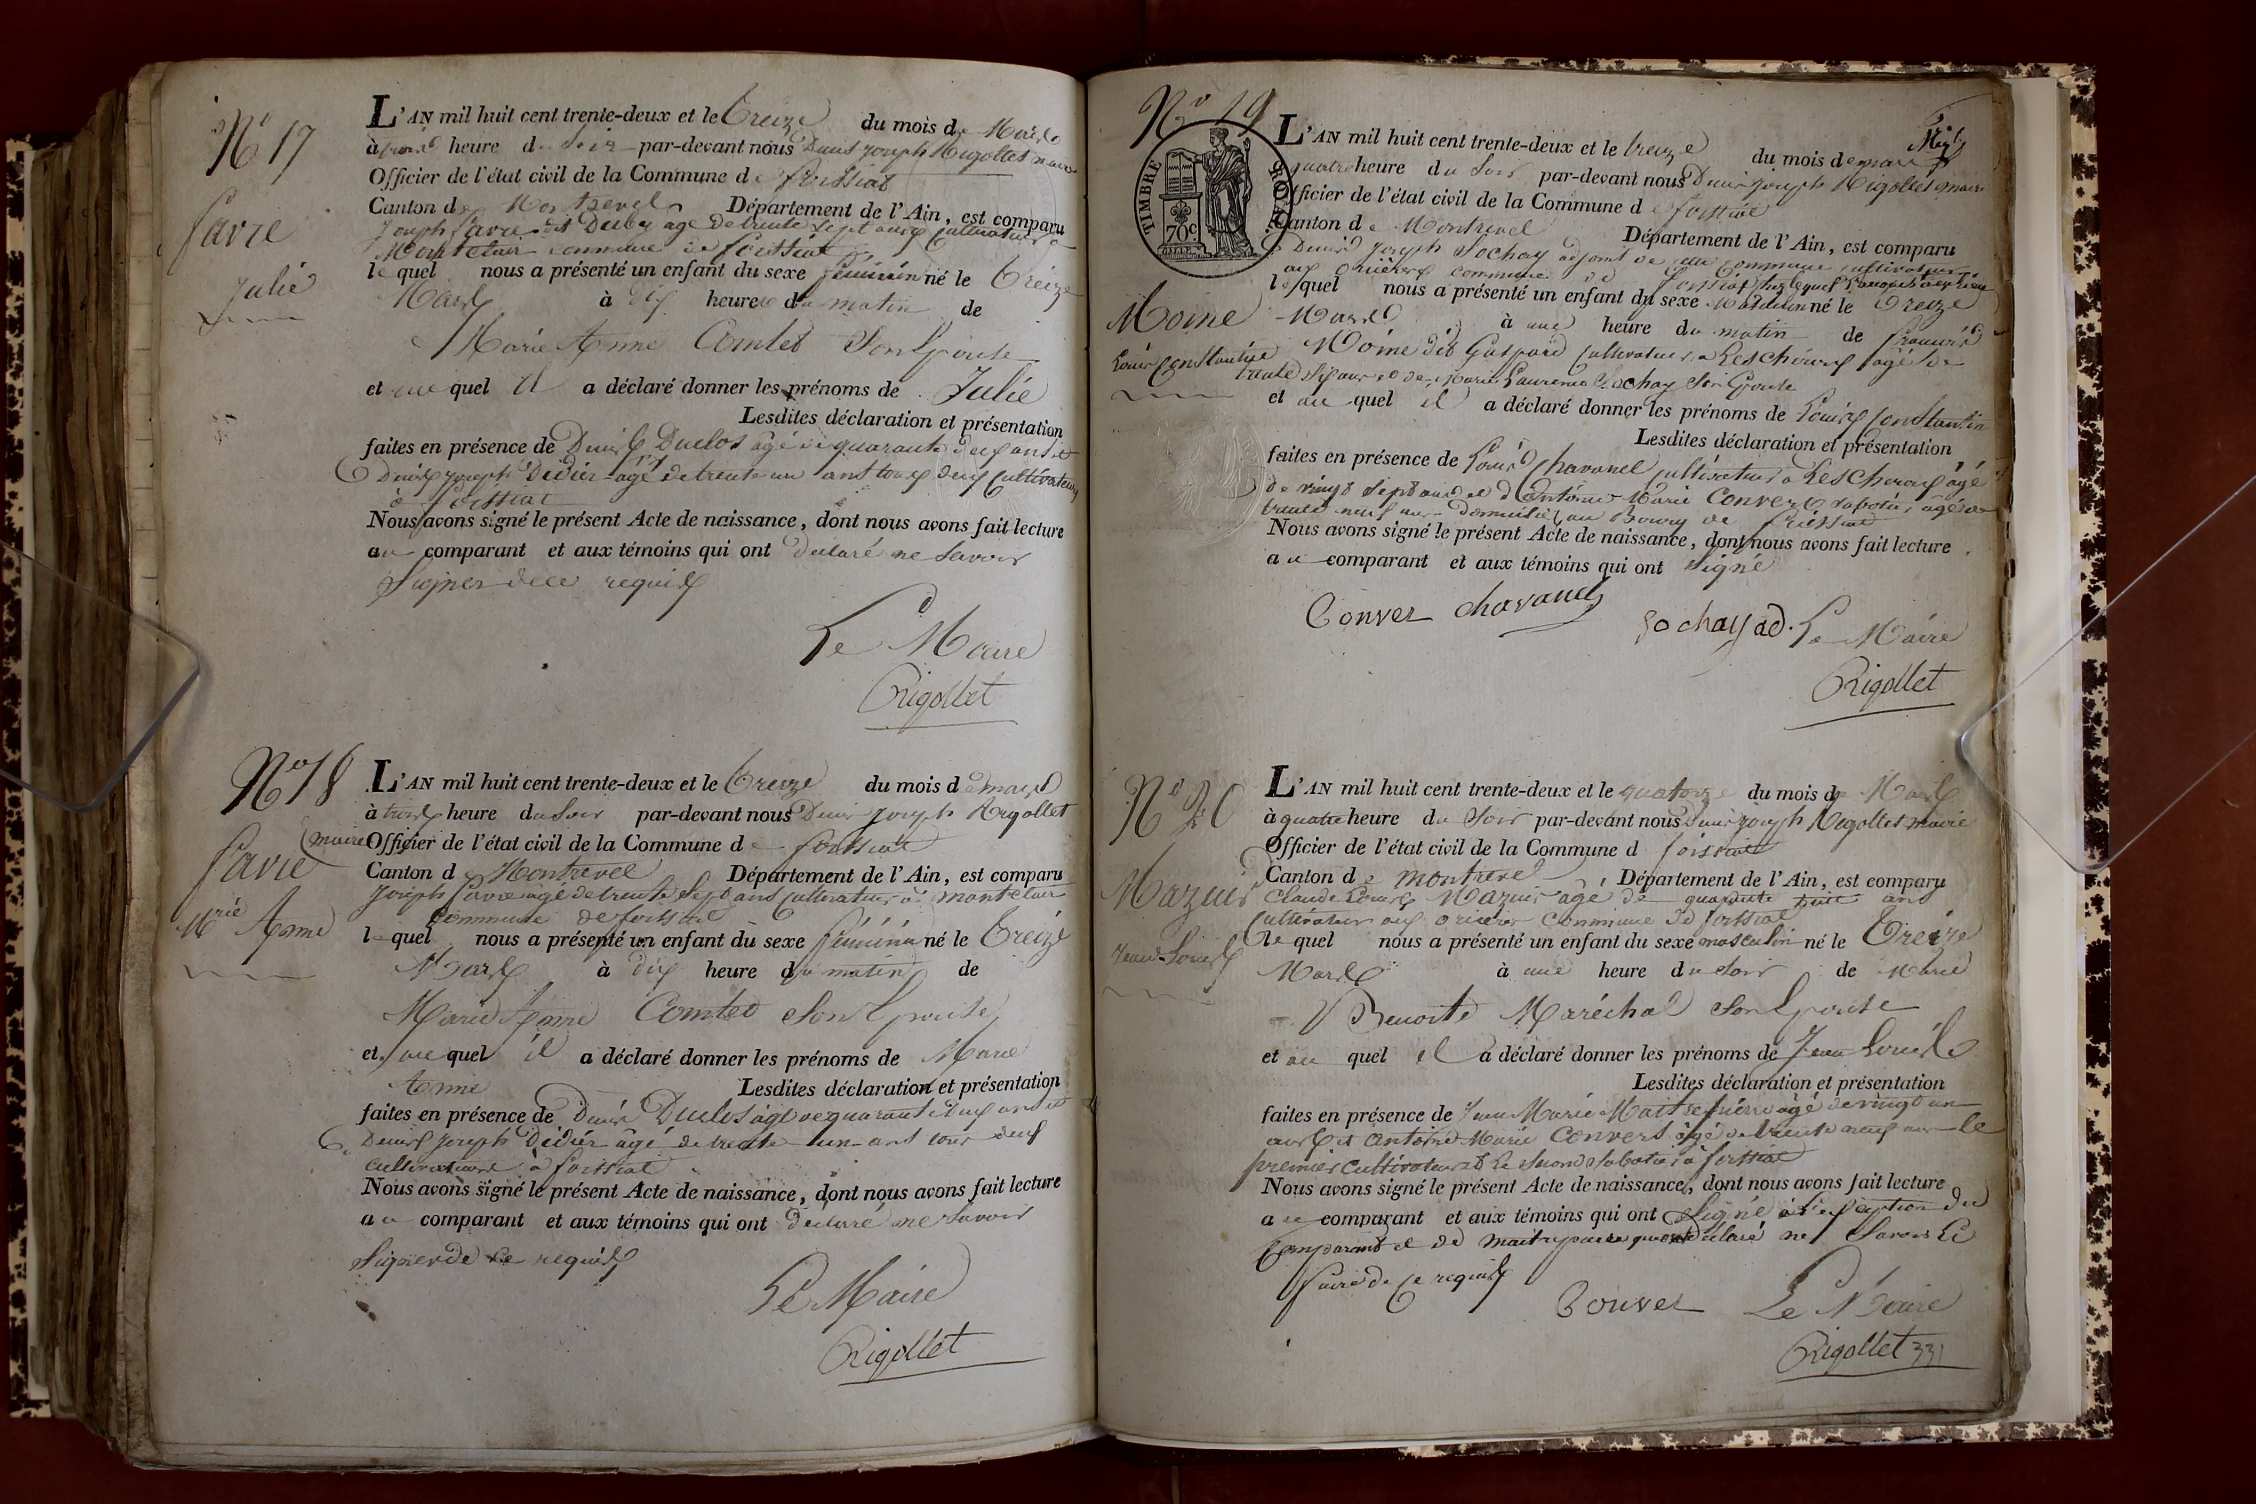 N° 17
Favre
Julie
L'AN mil huit cent trente-deux et le Treize du mois de Mars
à trois heure du Soir par-devant nous Denis Joseph Rigollet maire
Officier de l'état civil de la Commune de foissiat
Canton de Montrevel Département de l'Ain, est comparu
Joseph favre dit Duby âgé de trente sept ans Cultivateur à
Montclair commune de foissiat
lequel nous a présenté un enfant du sexe féminin né le Treize
Mars à dix heures du matin de
Marie Anne Comtet Son Epouse
et au quel il a déclaré donner les prénoms de Julie
Lesdites déclaration et présentation
faites en présence de Denis Duclos âgé de quarante deux ans et
Denis joseph Didier âgé de trente un ans tous deux Cultivateurs
à foissiat
Nous avons signé le présent Acte de naissance, dont nous avons fait lecture
au comparant et aux témoins qui ont déclaré ne Savoir
Signer de ce requis
Le Maire
Rigollet
N° 18
favre
Mrie Anne
L'AN mil huit cent trente-deux et le Treize du mois de mars
à trois heure du Soir par-devant nous Denis joseph Rigollet
maire Officier de l'état civil de la Commune de foissiat
Canton de Montrevel Département de l'Ain, est comparu
joseph favre âgé de trente Sept ans Cultivateur à montclair
Commune de foissiat
lequel nous a présenté un enfant du sexe féminin né le Treize
Mars à dix heure du matin de
Marie Anne Comtet Son Epouse
et au quel il a déclaré donner les prénoms de Marie
Anne Lesdites déclaration et présentation
faites en présence de Denis Duclos âgé de quarante deux ans et
Denis joseph Didier âgé de trente un ans tous deux
cultivateurs à foissiat
Nous avons signé le présent Acte de naissance, dont nous avons fait lecture
au comparant et aux témoins qui ont déclaré ne Savoir
Signer de ce requis
Le Maire
Rigollet
N° 19
TIMBRE ROYAL
70c
Moine
Louis Constantin
L'AN mil huit cent trente-deux et le treize du mois de mars
quatre heure du Soir par-devant nous Denis joseph Rigollet maire
Officier de l'état civil de la Commune de foissiat
Canton de Montrevel Département de l'Ain, est comparu
Denis joseph Sochay adjoint de cette Commune cultivateur
aux orrières commune de foissiat
lequel nous a présenté un enfant du sexe masculin né le Treize
Mars à une heure du matin de francois
Moine dit Gaspard Cultivateur à Lescheroux âgé de
trente six ans et de Marie Laurence Sochay Son Epouse
et au quel il a déclaré donner les prénoms de Louis Constantin
Lesdites déclaration et présentation
faites en présence de Louis Chavanel cultivateur à Lescheroux âgé
de vingt Sept ans et d'Antoine Marie Convert Sabotier âgé de
trente neuf ans domicilié au Bourg de foissiat
Nous avons signé le présent Acte de naissance, dont nous avons fait lecture
au comparant et aux témoins qui ont Signé
Conver chavanel
Sochay ad. Le Maire
Rigollet
N° 20
Mazuir
Jean Louis
L'AN mil huit cent trente-deux et le quatorze du mois de Mars
à quatre heure du Soir par-devant nous Denis joseph Rigollet maire
Officier de l'état civil de la Commune d foissiat
Canton de montrevel Département de l'Ain, est comparu
Claude Louis Mazuir âgé de quarante huit ans
Cultivateur aux orières commune de foissiat
lequel nous a présenté un enfant du sexe masculin né le Treize
Mars à une heure du Soir de Marie
Benoite Maréchal Son Epouse
et au quel il a déclaré donner les prénoms de Jean Louis
Lesdites déclaration et présentation
faites en présence de Jean Marie Maitrepierre âgé de vingt un
ans et antoine Marie Convert âgé de trente neuf ans le
premier Cultivateur et le Second Sabotier à foissiat
Nous avons signé le présent Acte de naissance, dont nous avons fait lecture
au comparant et aux témoins qui ont Signé à l'exception du
Comparant et de maitrepierre qui ont déclaré ne Savoir le
faire de ce requis
Conver Le Maire
Rigollet
331